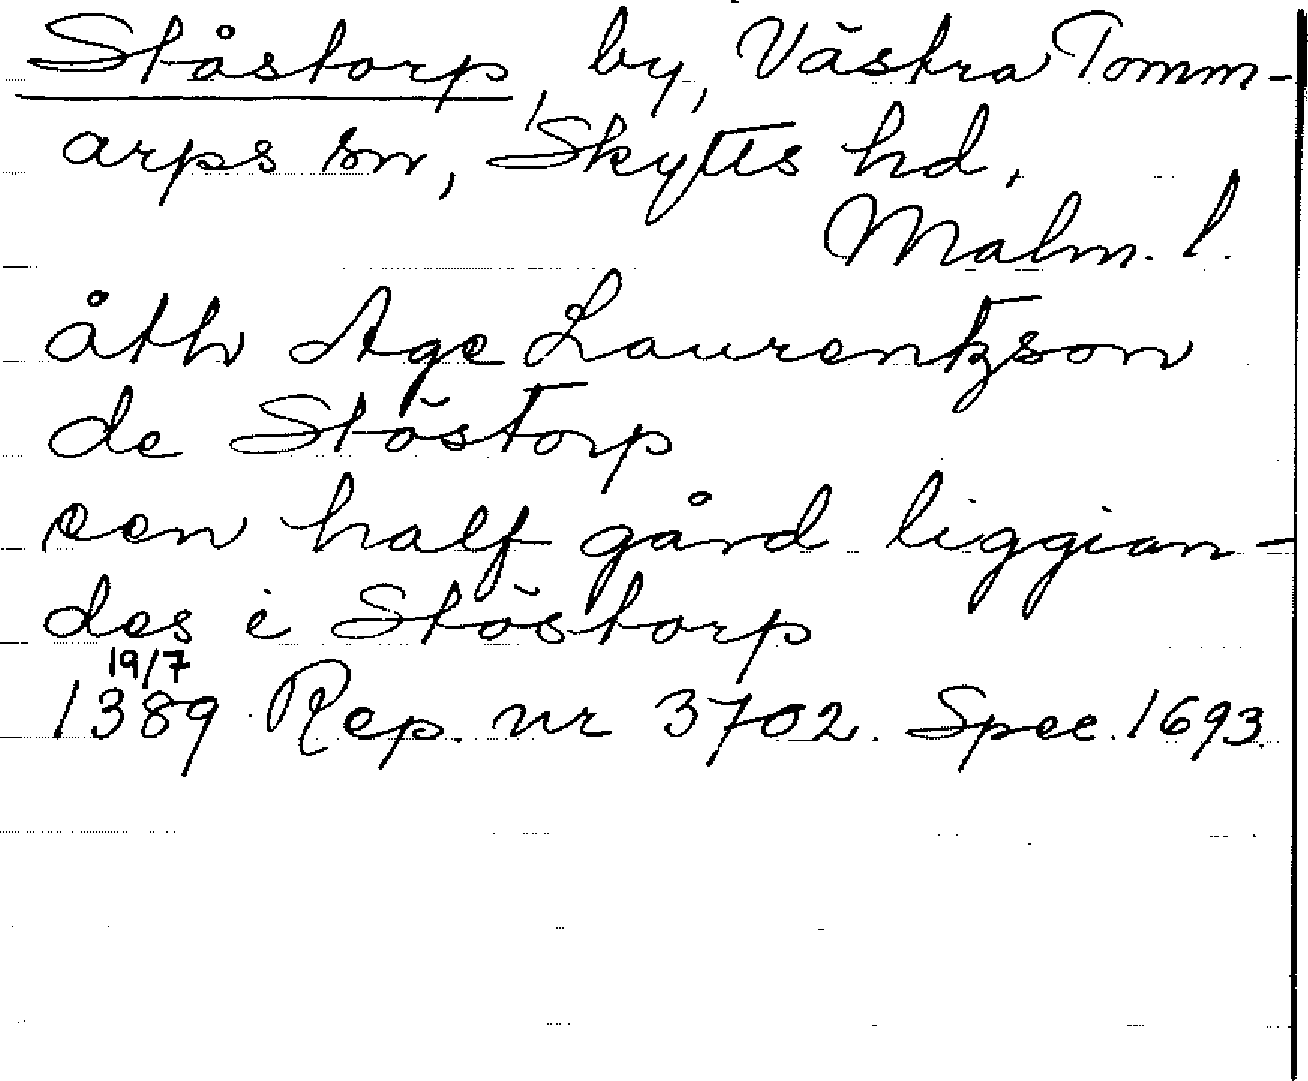 Ståstorp, by, Västra Tomm-
arps sn, Skytts hd,
Malm. l.
åth Age Laurentzson
de Stöstorp
een half gård liggian-
des i Stöstorp
19/7
1389 Rep. nr 3702. Spec. 1693.